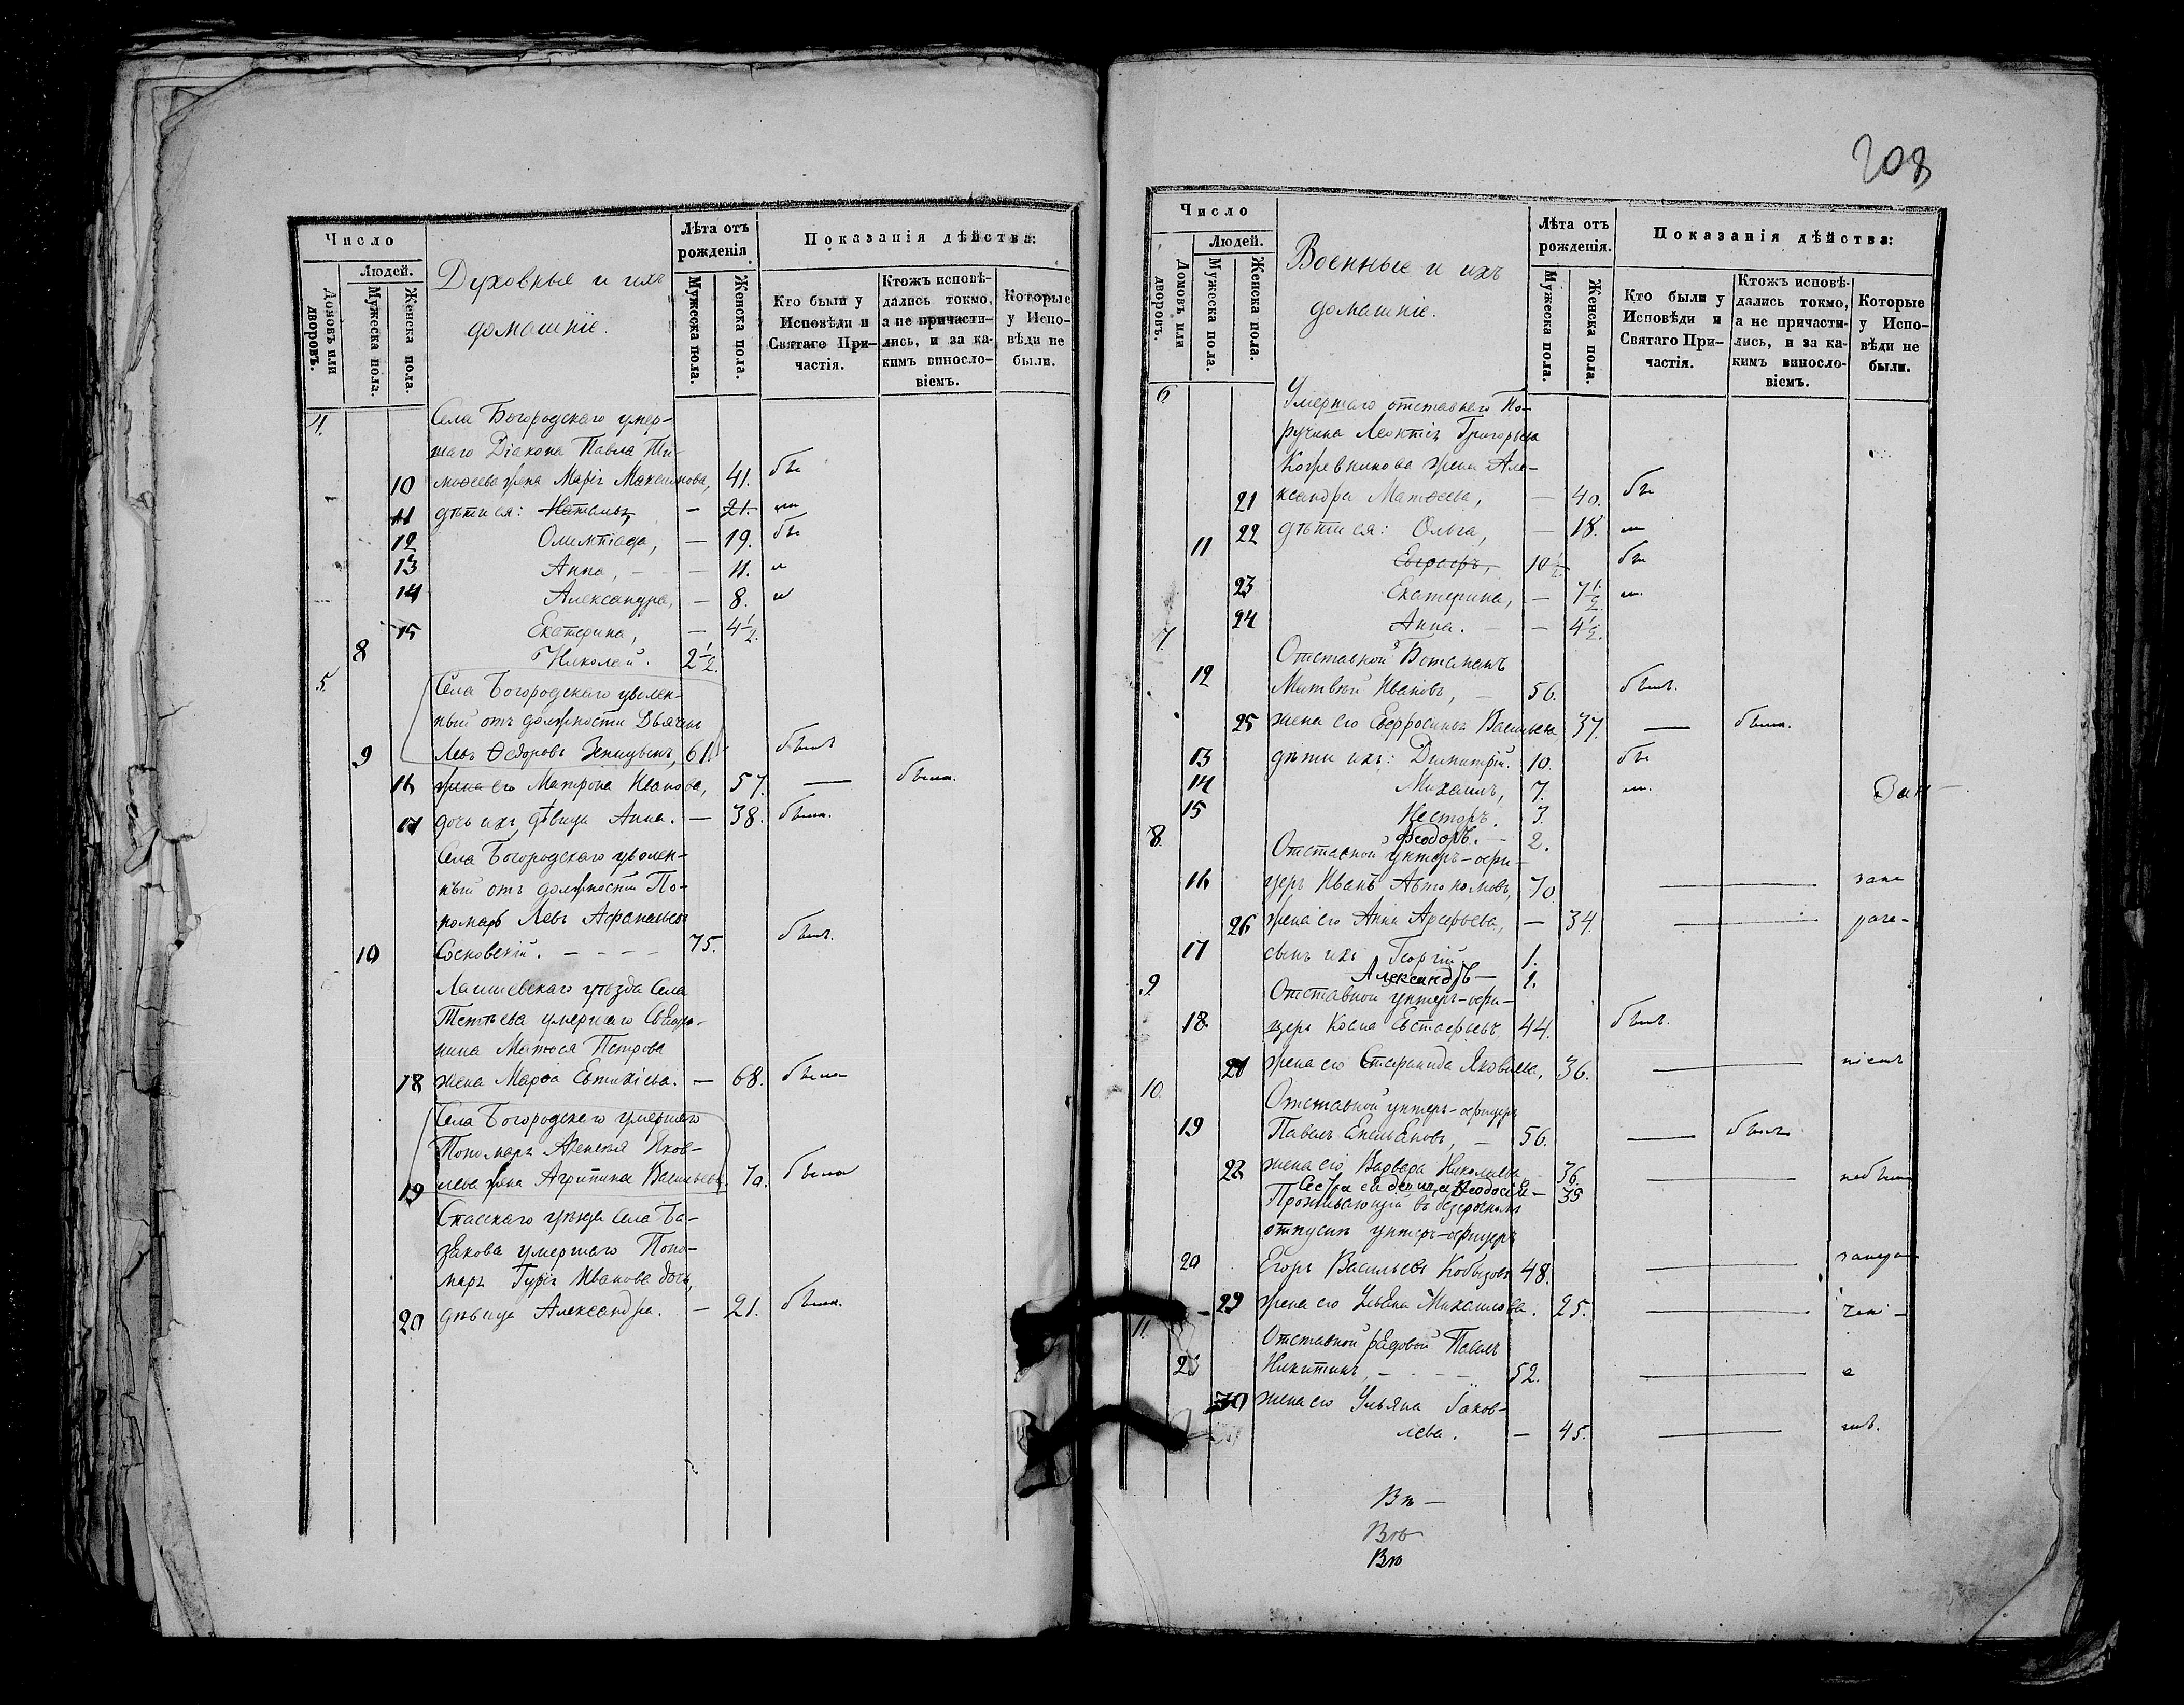 Число
Людей.
Домовъ или дворовъ.
Мужеска пола.
Женска пола.
Духовные и ихъ
домашніе.
Лѣта отъ рожденія
Мужеска пола.
Женска пола.
Показанія дѣйства:
Кто были у Исповѣди и Святаго Причастія.
Ктожъ исповѣдались токмо, а не причастились, и за какимъ винословіемъ.
Которые у Исповѣди не были.
4. Села Богородскаго умер-
шаго Діакона Павла Ти-
10 моѳеева жена Марія Максимова, 41. бы
11 дѣти ея: Наталья, - 21.
12 Олимпіада, - 19. бы
13 Анна, - - 11.
14 Александра, - 8.
15 Екатерина, - 4½.
8 Николай. 2½.
5. Села Богородскаго уволен-
ный отъ должности Дьячекъ
9 Левъ Ѳедоровъ 61. былъ
16 жена его Матрона Иванова, 57. — была.
17 дочь ихъ дѣвица Анна. - 38. была.
Села Богородскаго уволен-
ный отъ должности По-
номарь Левъ Афанасьевъ
10 Сосновскій. - - - - 75. былъ.
Лаишевскаго уѣзда Села
умершаго
Матѳея Петрова
18 жена Марѳа Евтихіева. - 68. была
Села Богородскаго умершаго
Пономаря Алексѣя Яков-
19 лева жена Агрипина Васильева 70. была
Спасскаго уѣзда Села Ба-
закова умершаго Поно-
маря Гурія Иванова дочь,
20 дѣвица Александра. - 21. была.
208
Число
Людей.
Домовъ или дворовъ.
Мужеска пола.
Женска пола.
Военные и ихъ
домашніе.
Лѣта отъ рожденія.
Мужеска пола.
Женска пола.
Показанія дѣйства:
Кто были у Исповѣди и Святаго Причастія.
Ктожъ исповѣдались токмо, а не причастились, и за какимъ винословіемъ.
Которые у Исповѣди не были.
6. Умершаго отставнаго По-
ручика Леонтія Григорьева
Кожевникова жена Але-
21 ксандра Матѳеева, - 40. бы
22 дѣти ея: Ольга, - 18.
11 Евграфъ, 10½ бы
23 Екатерина, - 7½.
24 Анна. - - 4½.
7. Отставной
12 Матвѣй Ивановъ, - 56. былъ.
25 жена его Евфросинья Васильева 37. — была.
13 дѣти ихъ: Димитрій. 10. бы
14 Михаилъ, 7.
15 Несторъ. 3.
Ѳеодоръ. - 2.
8. Отставной унтеръ-офи-
16 церъ Иванъ Автономовъ, 70. —
26 жена его Анна Арефьева, - 34. —
17 сынъ ихъ Георгій. 1.
Александръ - 1.
9. Отставной унтеръ-офи-
18 церъ Косма Евстафьевъ, 44. былъ.
27 жена его Стефанида Яковлева, 36. —
10. Отставной унтеръ-офицеръ
19 Павелъ Емельяновъ, - 56. — былъ
28 жена его Варвара Николаева 36. —
Сестра ея девица Ѳеодосія - 35
Проживающій въ безсрочномъ
отпускѣ унтеръ-офицеръ
20 Егоръ Васильевъ 48. —
29 жена его Ульяна Михайлова. 25. —
11. Отставной рядовой Павелъ
21 Никитинъ, - - - - 52. —
30 жена его Ульяна Яков-
лева. - 45. —